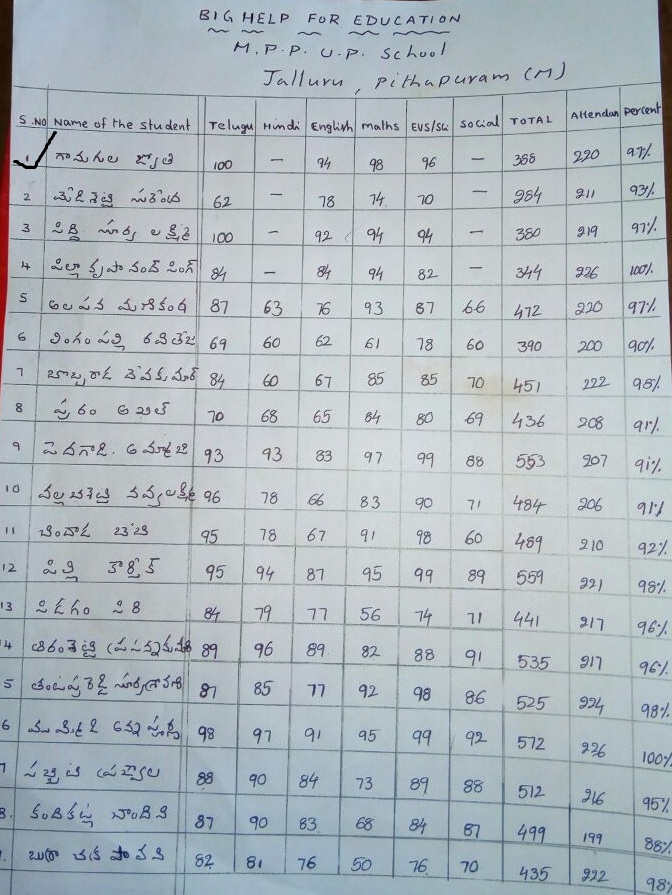 BIG HELP FOR EDUCATION
M.P.P. U.P. School
Jalluru, Pithapuram (M)
S.NO Name of the student Telugu Hindi English maths EVS/Sci Social TOTAL Attendan percent
1 గామగల జ్యోతి 100 — 94 98 96 — 388 220 97%
2 మేడిశెట్టి సురేంద్ర 62 — 78 74 70 — 284 211 93%
3 పిడ్డి సూర్య లక్ష్మి 100 — 92 94 94 — 380 219 97%
4 పిల్లా కృపానంద్ సింగ్ 84 — 84 94 82 — 344 226 100%
5 అలపన మణికంఠ 87 63 76 93 87 66 472 220 97%
6 లింగంపల్లి రవితేజ 69 60 62 61 78 60 390 200 90%
7 దేవకుమార్ 84 60 67 85 85 70 451 222 98%
8 పురం అఖిల్ 70 68 65 84 80 69 436 208 91%
9 పెదగాడి. 93 93 83 97 99 88 553 207 91%
10 నవ్యలక్ష్మి 96 78 66 83 90 71 484 206 91%
11 చిందాడ బేబి 95 78 67 91 98 60 489 210 92%
12 పిల్లి కార్తీక్ 95 94 87 95 99 89 559 221 98%
13 పిడగం సిరి 84 79 77 56 74 71 441 217 96%
4 ప్రసన్నకుమారి 89 96 89 82 88 91 535 217 96%
5 87 85 77 92 98 86 525 224 98%
6 ముమ్మిడి అన్నపూర్ణ 98 97 91 95 99 92 572 226 100%
88 90 84 73 89 88 512 216 95%
8. కందికట్ల నాందిని 87 90 83 68 84 87 499 199 88%
బుర్రా చక్ర పావని 82 81 76 50 76 70 435 222 98%